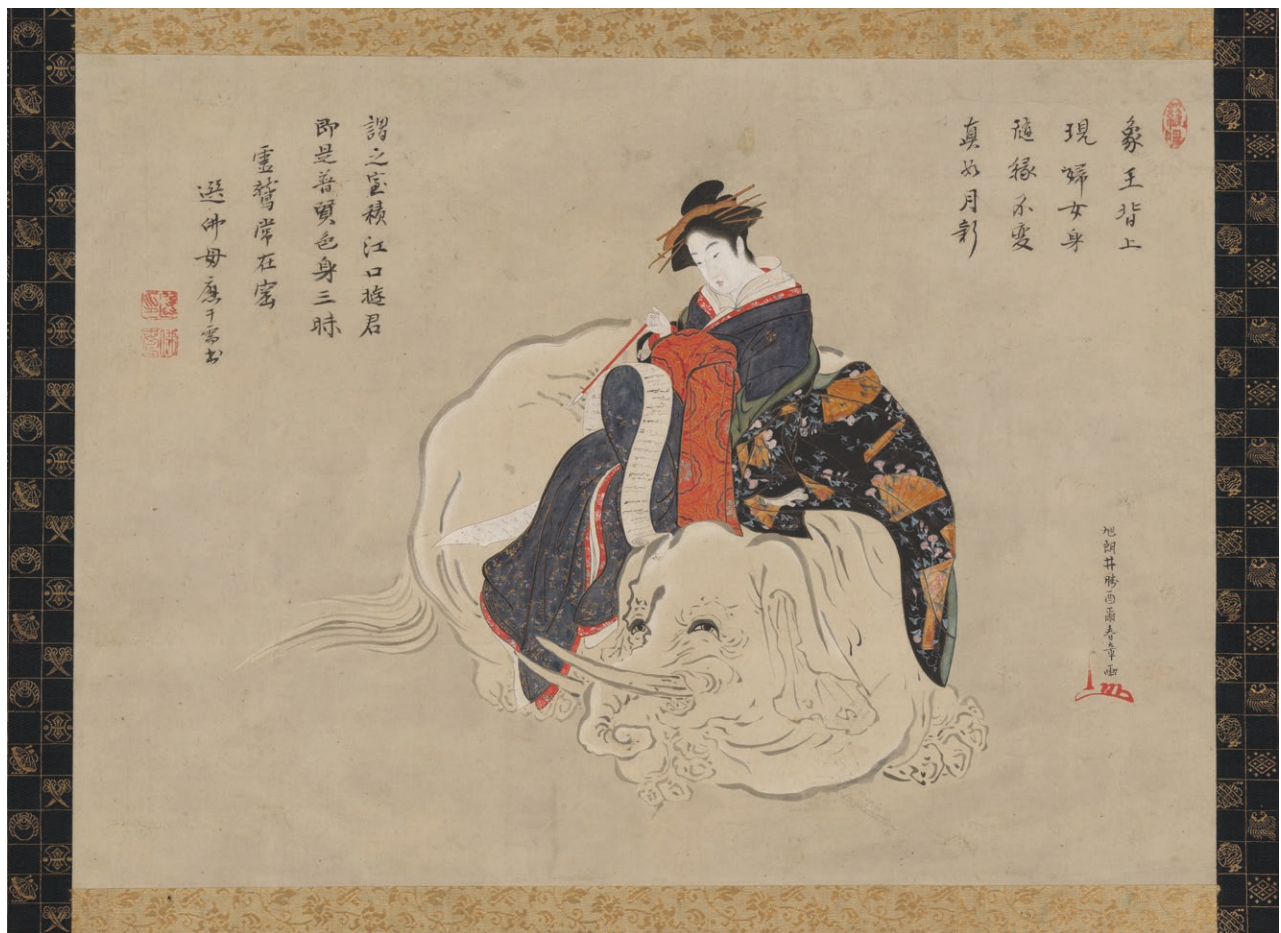 象王背上
現婦女身
随縁不変
真如月新
謂之室積江口遊君
即是普賢色身三昧
霊鷲常在窟
選佛
旭朗井勝酉爾春章画